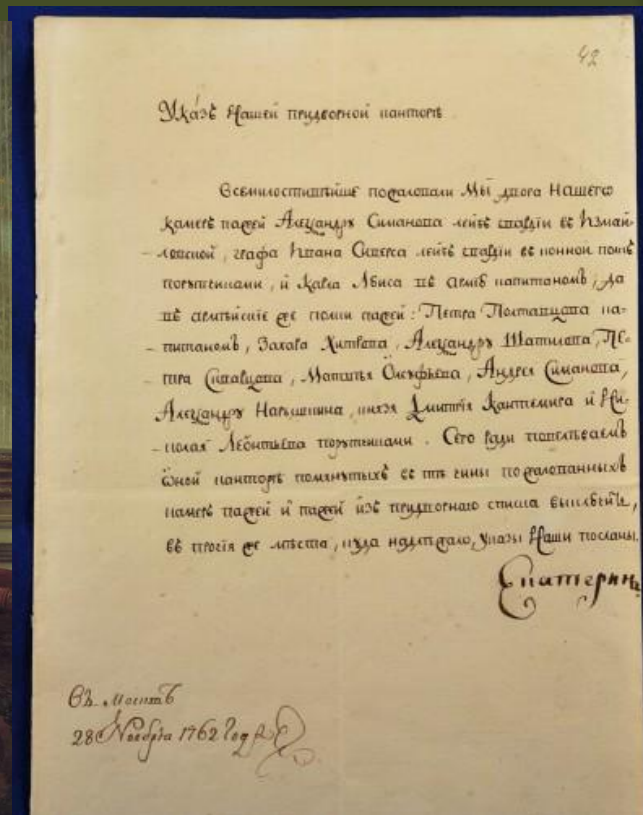 42
Указъ Нашей придворной канторѣ
Всемилостивѣйше пожаловали Мы двора Нашего
камеръ пажей Александру Симанова лейбъ гвардіи въ Измай-
ловской, графа Ивана Сиверса лейбъ гвардіи въ конной полкъ
порутчиками, и Карла въ армію капитаномъ; да
въ армѣйскіе же полки пажей: Петра Полтавцова ка-
питаномъ, Захара Хитрова, Александру Шатилова, Пе-
тра Матвѣя Олсуфьева, Андрея Симанова,
Александру Нарышкина, князя Дмитрія Кантемира и Ни-
колая Леонтьева порутчиками. Сего ради повелѣваемъ
оной канторѣ помянутыхъ въ тѣ чины пожалованныхъ
камеръ пажей и пажей изъ придворнаго списка выключить,
въ протчія же мѣста, куда надлежало, указы Наши посланы.
Екатерина
Въ Москвѣ
28 Ноября 1762 году